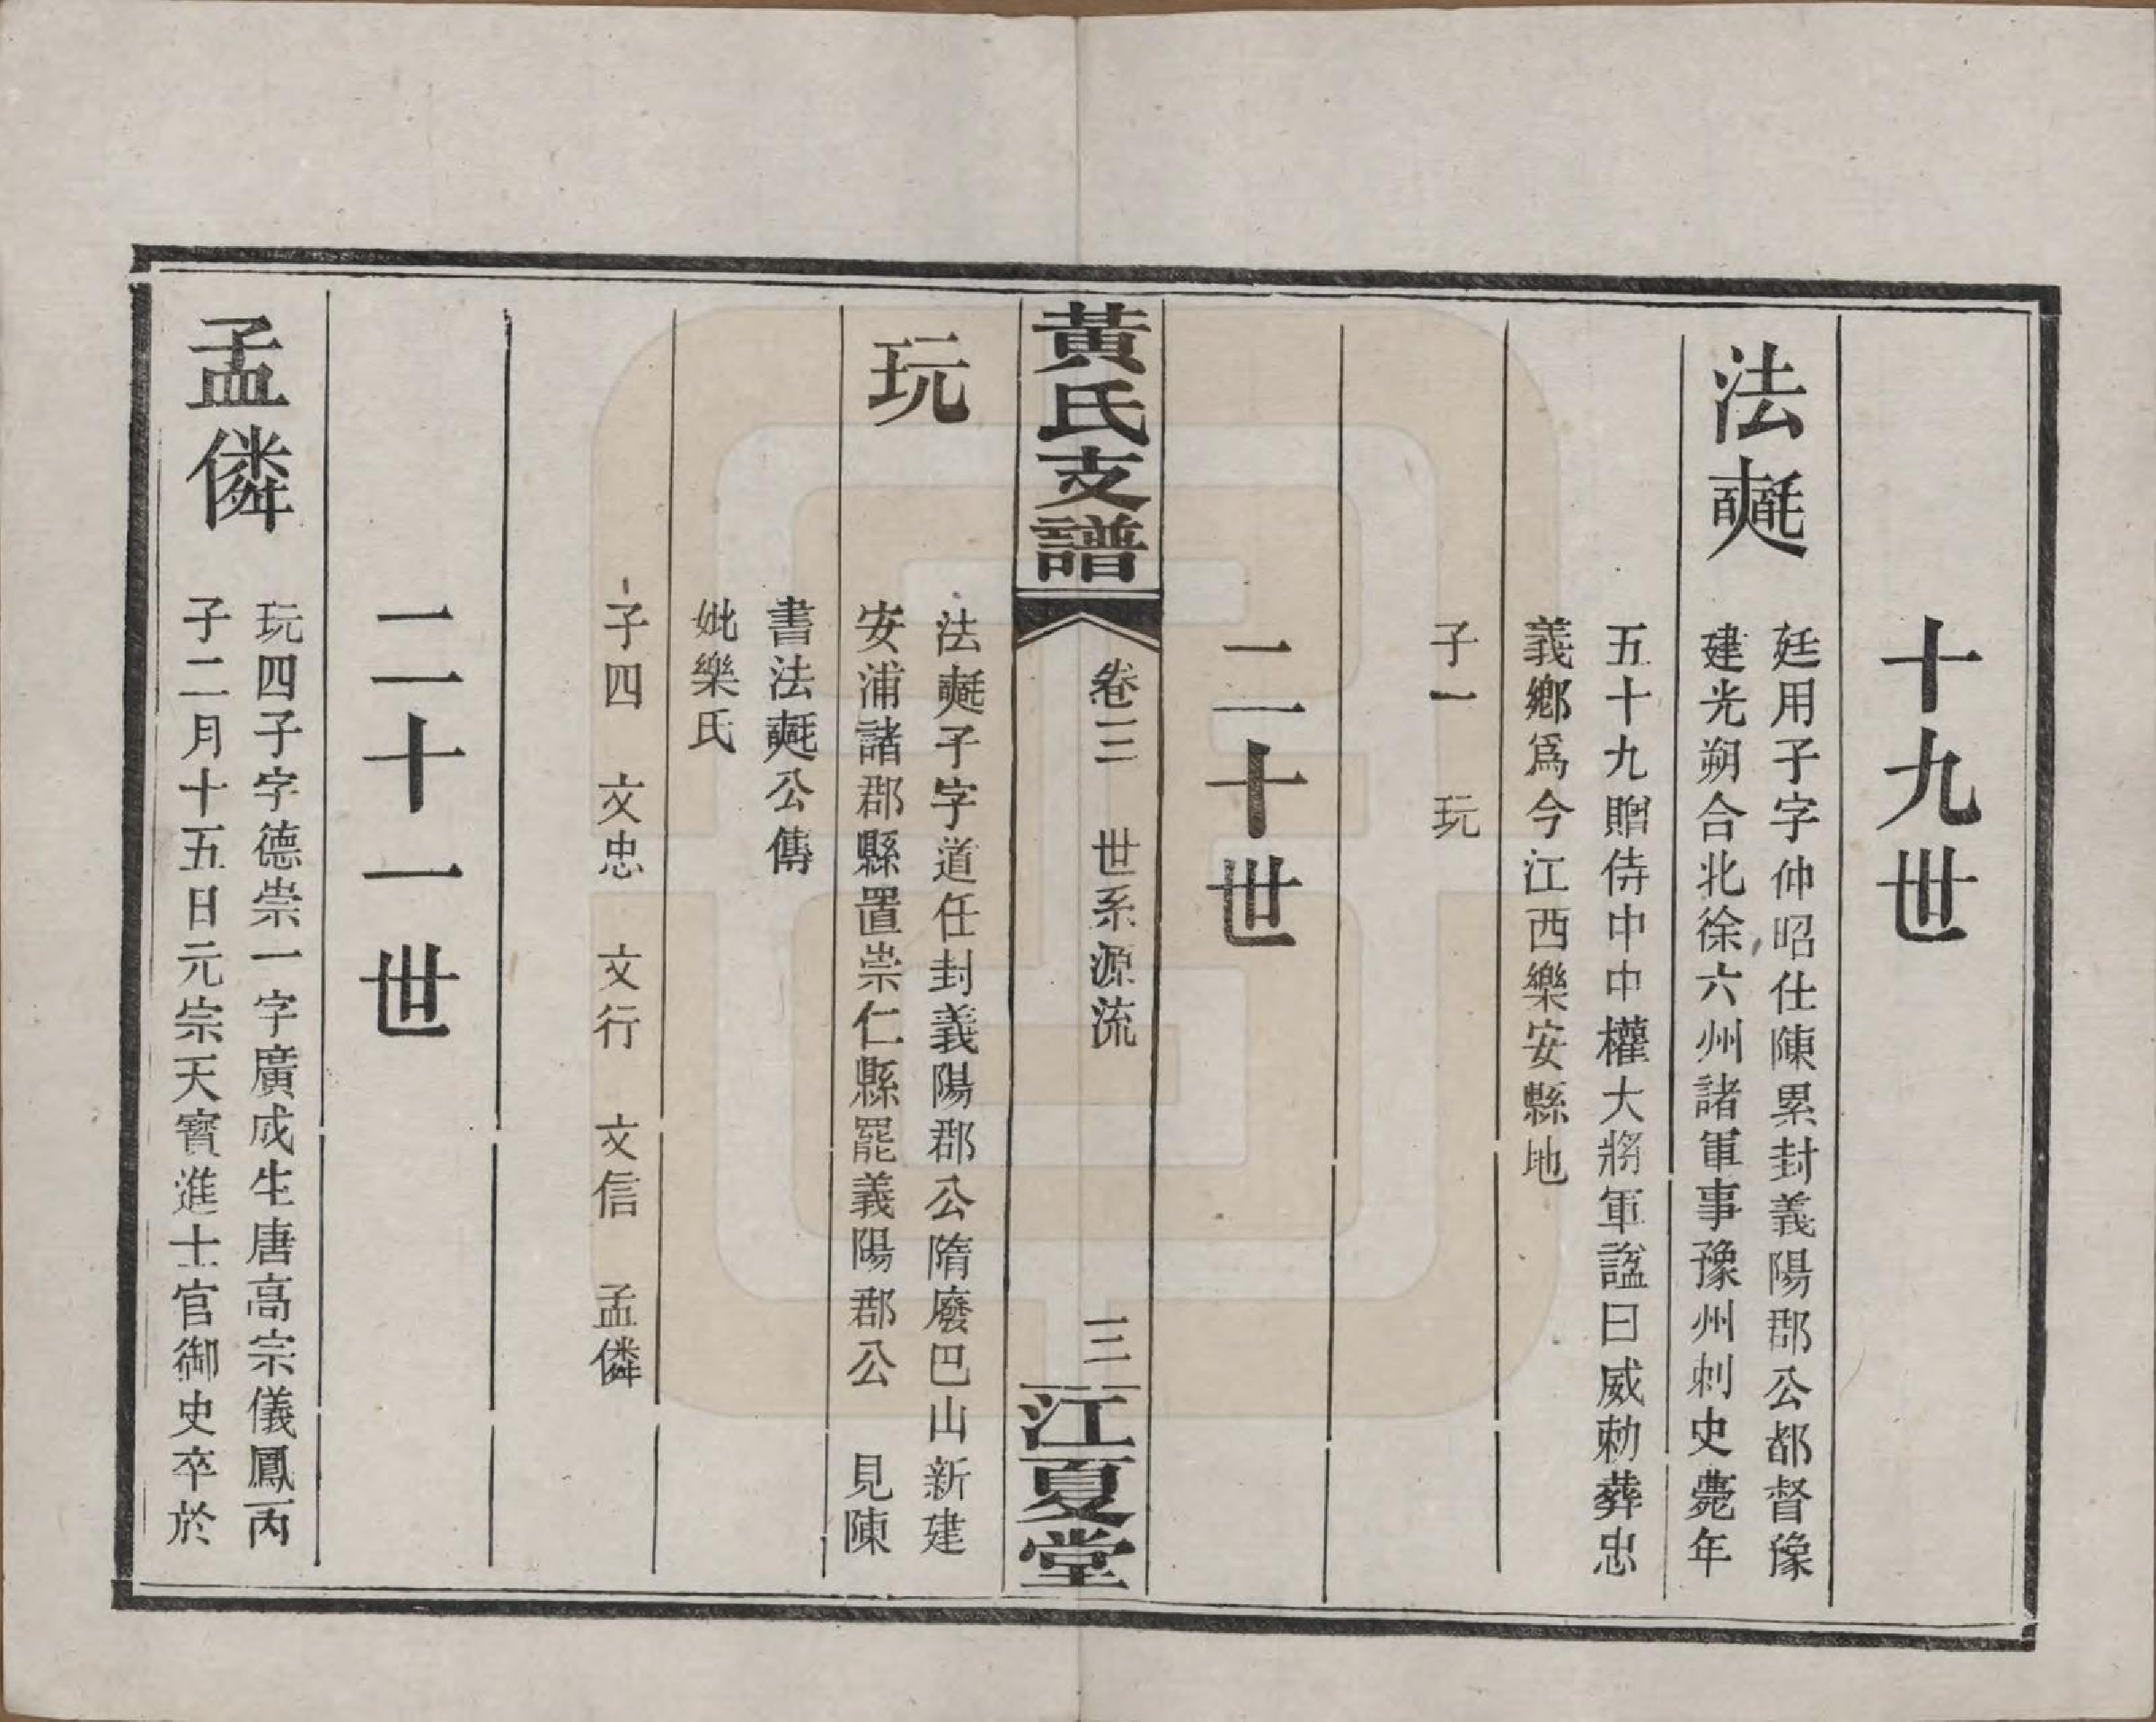 十九世
法𣰰
廷用子字仲昭仕陳累封義陽郡公都督豫
建光朔合北徐六州諸軍事豫州刺史薨年
五十九贈侍中中權大將軍諡曰威勅葬忠
義鄉爲今江西樂安縣地
子一　玩
二十世
黃氏支譜
卷三　世系源流
三
江夏堂
玩
法𣰰子字道任封義陽郡公隋廢巴山新建
安浦諸郡縣置崇仁縣罷義陽郡公　見陳
書法𣰰公傳
妣樂氏
子四　文忠　文行　文信　孟僯
二十一世
孟僯
玩四子字德崇一字廣成生唐高宗儀鳳丙
子二月十五日元宗天寶進士官御史卒於